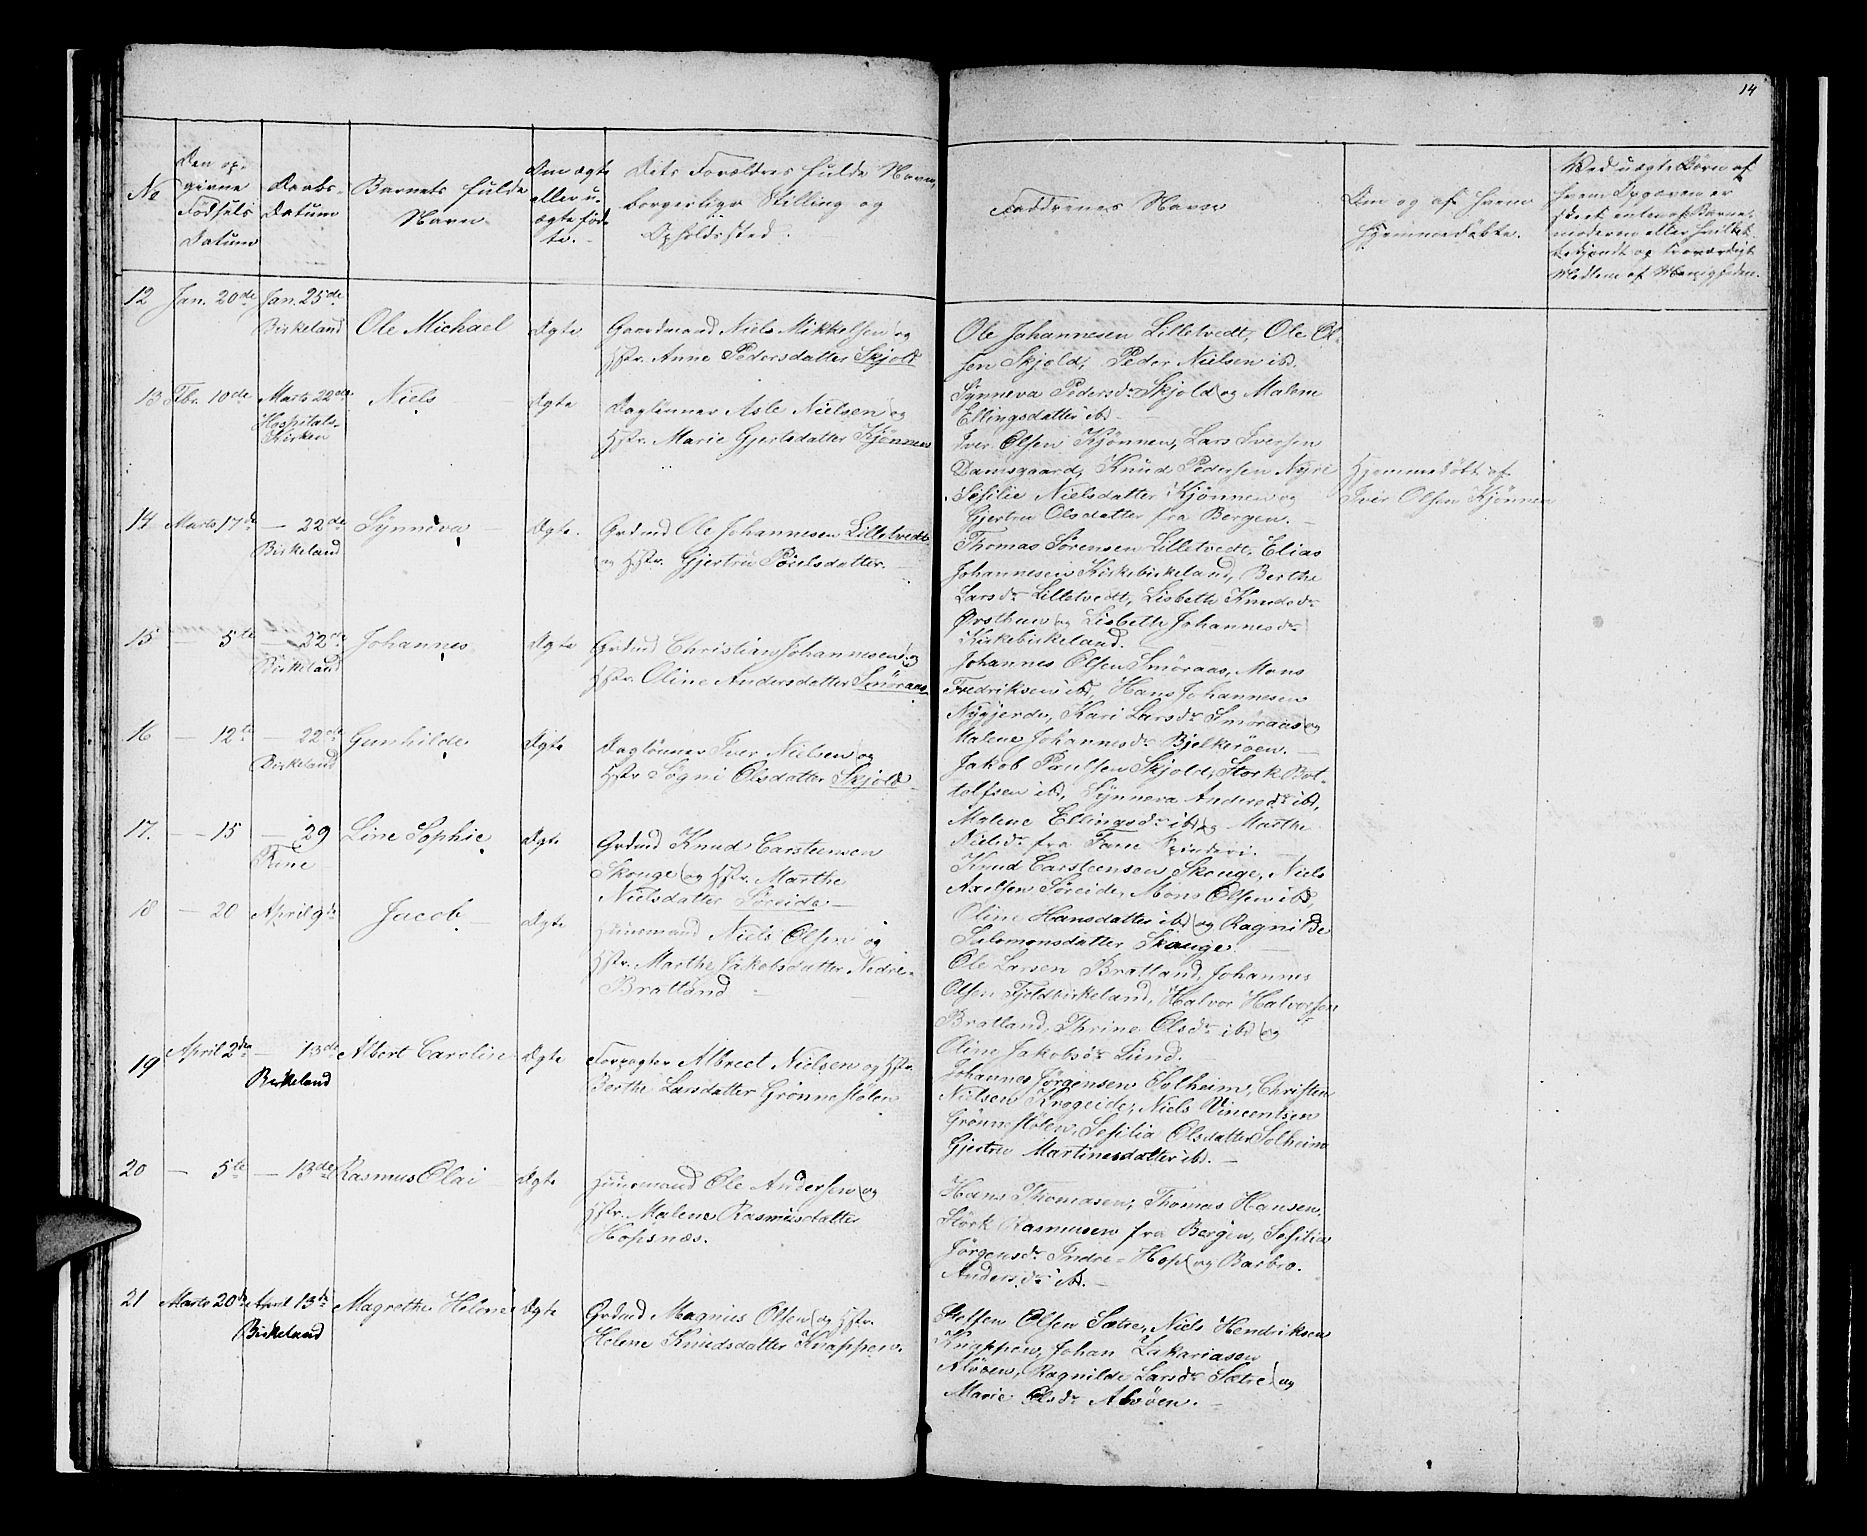 14
No
Den op-
givne
Fødsels
Datum
Daabs-
Datum
Barnets fulde
Navn
Om ægte
eller u-
ægte fød-
te.
Dets Forældres fulde Navn,
borgerlige Stilling og
Opholdssted.
Faddrenes Navne
Om og af hvem
hjemmedøbte.
Ved uægte Børn af
hvem Opgaven er
skeet enten af Barne-
moderen eller hvilket
bekjendt og troværdigt
Medlem af Menigheden.
12 Jan. 20de Jan. 25de
Birkeland Ole Michael Ægte
Gaardmand Niels Mikkelsen og
Hstr. Anne Pedersdatter Skjold
Ole Johannesen Lilletvedt, Ole Ol-
sen Skjold, Peder Nielsen ibd.
Synneva Pedersdr Skjold og Malene
Ellingsdatter ibd.
13 Fbr. 10de Marts 22de Niels Ægte
Hospitals-
Kirken
Daglønner Asle Nielsen og
Hstr. Marie Gjertsdatter Kjønnen
Iver Olsen Kjønnen, Lars Iversen
Damsgaard, Knud Pedersen Nyre
Sesilie Nielsdatter Kjønnen og
Gjertru Olsdatter fra Bergen.
Hjemmedøbt af
Iver Olsen Kjønnen
14 Marts 17de — 22de Synneva Ægte.
Birkeland
Grdmd Ole Johannesen Lilletvedt
og Hstr. Gjertru Poulsdatter.
Thomas Sørensen Lilletvedt, Elias
Johannesen Kirkebirkeland, Berthe
Larsdr Lilletvedt, Lisbeth Knudsdr
Ørsthun og Lisbeth Johannesdr
Kirkebirkeland.
15 — 5te — 22de Johannes Ægte
Birkeland
Grdmd Christian Johannesen og
Hstr. Oline Andersdatter Smøraas
Johannes Olsen Smøraas, Mons
Fredriksen ibd, Hans Johannesen
Nygjerde, Kari Larsdr Smøraas og
Malene Johannesdr Bjelkerøen.
16 — 12te — 22de Gunhilde Ægte
Birkeland
Daglønner Iver Nielsen og
Hstr Søgni Olsdatter Skjold
Jakob Paulsen Skjold, Stork Bot-
tolfsen ibd, Synneva Andersdr ibd,
Malene Ellingsdr ibd og Marthe
Nielsdr fra Fane Spinderi.
17. — 15 — 29 Line Sophie Ægte
Fane
Grdmd Knud Carstensen
Skouge og Hstr. Marthe
Nielsdatter Søreide
Knud Carstensen Skouge, Niels
Axelsen Søreide, Mons Olsen ibd,
Oline Hansdatter ibd og Ragnilde
Salomonsdatter Skouge
18 — 20 April 9de Jacob Ægte
Huusmand Niels Olsen og
Hstr. Marthe Jakobsdatter Nedre-
Bratland
Ole Larsen Bratland, Johannes
Olsen Fjeldbirkeland, Halvor Halvorsen
Bratland, Thrine Olsdr ibd og
Oline Jakobsdr Lund.
19 April 2den — 13de Albert Caroline Ægte
Birkeland
Forpagter Albrect Nielsen og Hstr.
Berthe Larsdatter Grønnestølen
Johannes Jørgensen Solheim, Christen
Nielsen Krogeide, Niels Vincentsen
Grønnestølen, Sesilia Olsdatter Solheim
Gjertru Martinesdatter ibd.
20 — 5te — 13de Rasmus Olai Ægte
Huusmand Ole Andersen og
Hstr. Malene Rasmusdatter
Hopsnæs.
Hans Thomasen, Thomas Hansen,
Størk Rasmusen fra Bergen, Sesilia
Jørgensdr Indre-Hop og Barbro
Andersdr ibd.
21 Marts 20de April 13de Magrethe Helene Ægte
Birkeland
Grdmd Magnus Olsen og Hstr.
Helene Knudsdatter Knappen.
Steffen Olsen Sætre, Niels Hendriksen
Knappen, Johan Zakariasen
Alvøen, Ragnilde Larsdr Sætre og
Marie Olsdr Alvøen.